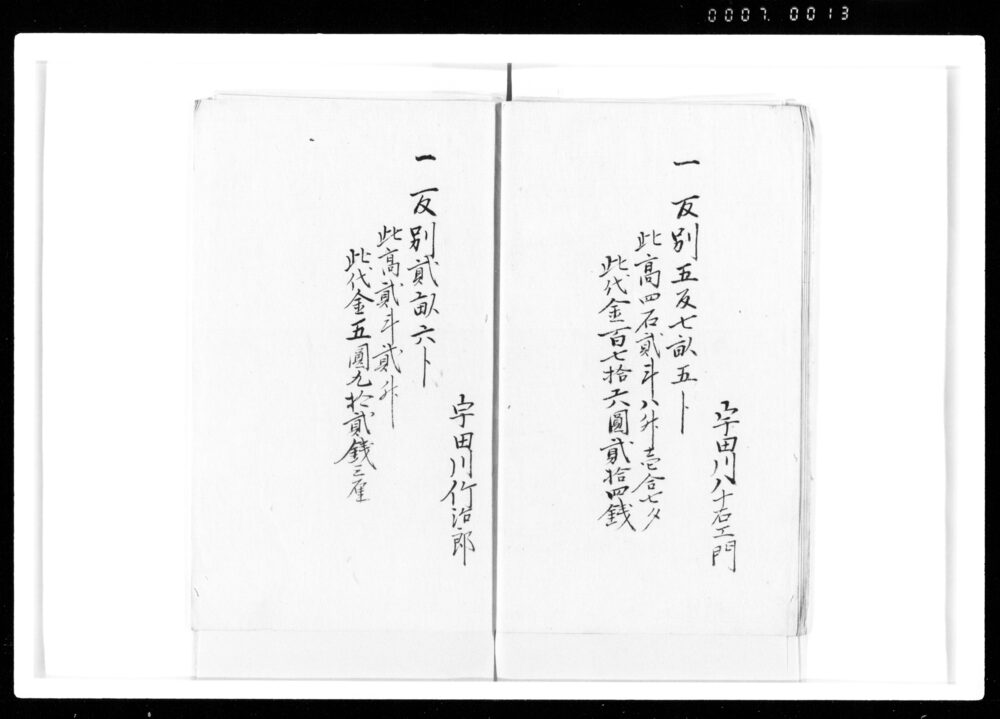 0007. 0013
宇田川八十右エ門
一 反別五反七畝五卜
此高四石貳斗八升壱合七夕
此代金百七拾六圓貳拾四銭
宇田川竹治郎
一 反別貳畝六卜
此高貳斗貳升
此代金五圓九拾貳銭三厘